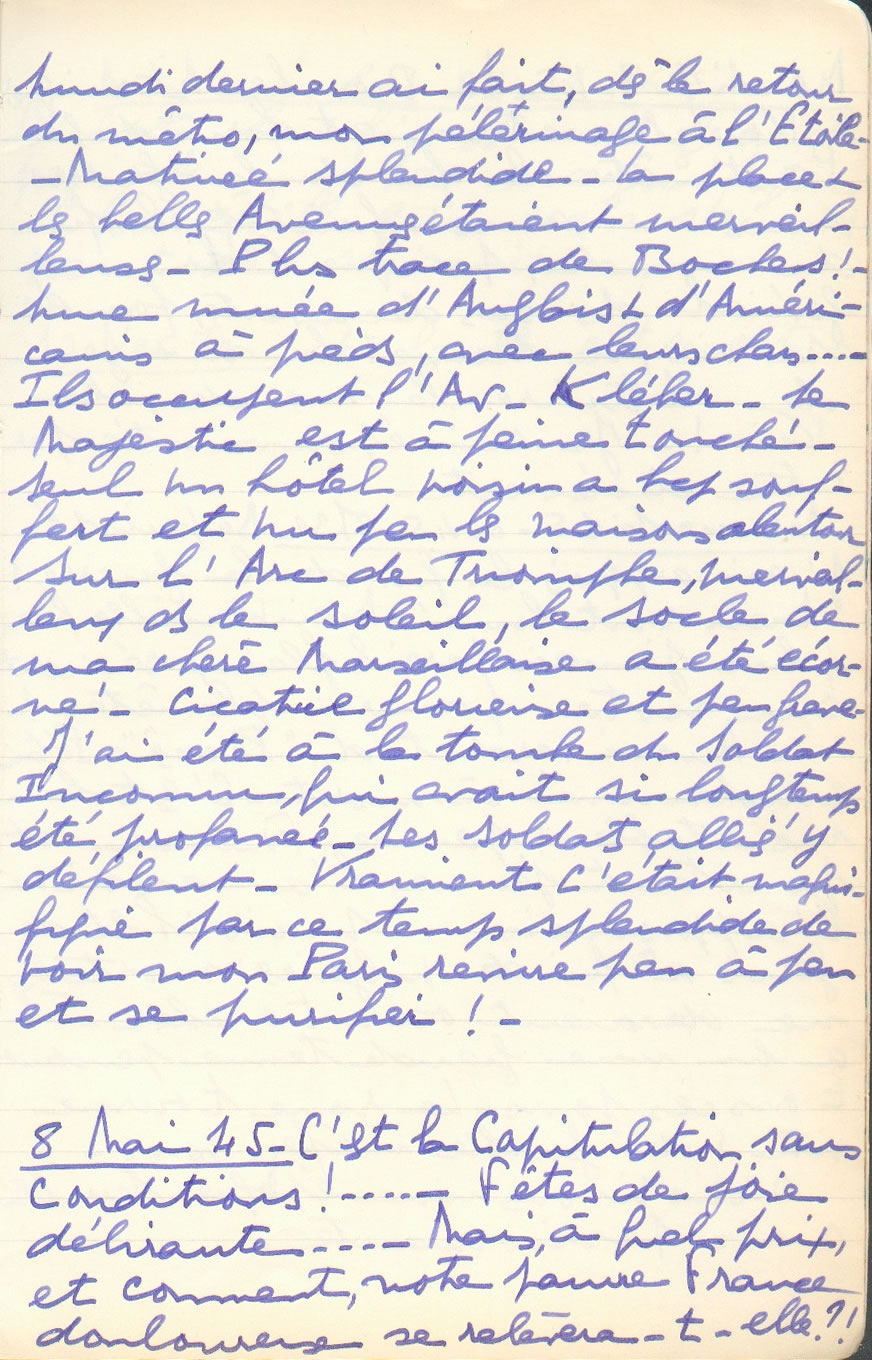 Lundi dernier ai fait, dès le retour
du métro, mon pélérinage à l'Etoile-
- Matineé splendide - la place &
les belles Avenues étaient merveil-
leuses - Plus trace de Boches! -
Une nuée d'Anglais & d'Améri-
cains à pieds, avec leurs chars....
Ils occupent l'Av - Kléber - Le
Majestic est à peine touché -
seul un hôtel voisin a bcp souf-
fert et un peu les maisons alentour
Sur l'Arc de Triomphe, merveil-
leux ds le soleil, le socle de
ma chère Marseillaise a été écor-
né - Cicatrice glorieuse et peu grave -
J'ai été à la tombe du Soldat
Inconnu, qui avait si longtemps
été profaneé - Les soldats alliés y
défilent - Vraiment c'était magni-
fique par ce temps splendide de
voir mon Paris revivre peu à peu
et se purifier! -
8 Mai 45 - C'est la Capitulation sans
Conditions!..... - Fêtes de joie
délirante.... - Mais, à quel prix,
et comment, notre pauvre France
douloureuse se relèvera-t-elle?!